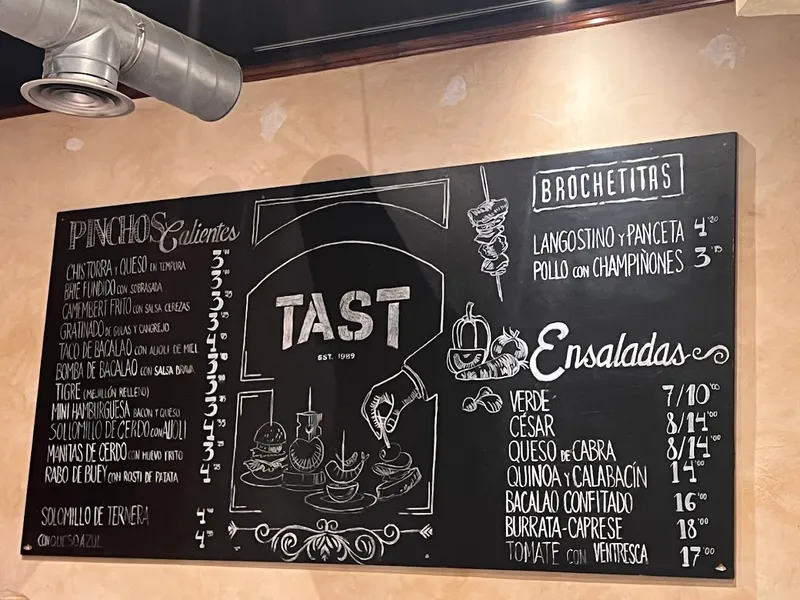 PINCHOS Calientes
CHISTORRA Y QUESO EN TEMPURA
BRIE FUNDIDO CON SOBRASADA
CAMEMBERT FRITO CON SALSA CEREZAS
GRATINADO DE GULAS Y CANGREJO
TACO DE BACALAO CON ALIOLI DE MIEL
BOMBA DE BACALAO CON SALSA BRAVA
TIGRE (MEJILLÓN RELLENO)
MINI HAMBURGUESA BACON Y QUESO
SOLLOMILLO DE CERDO CON ALIOLI
MANITAS DE CERDO CON HUEVO FRITO
RABO DE BUEY CON ROSTI DE PATATA
SOLOMILLO DE TERNERA
CON QUESO AZUL
TAST
EST. 1989
BROCHETITAS
LANGOSTINO Y PANCETA 4'20
POLLO CON CHAMPIÑONES 3
Ensaladas
VERDE 7/10'00
CÉSAR 8/14'00
QUESO DE CABRA 8/14'00
QUINOA Y CALABACÍN 14'00
BACALAO CONFITADO 16'00
BURRATA-CAPRESE 18'00
TOMATE CON VENTRESCA 17'00